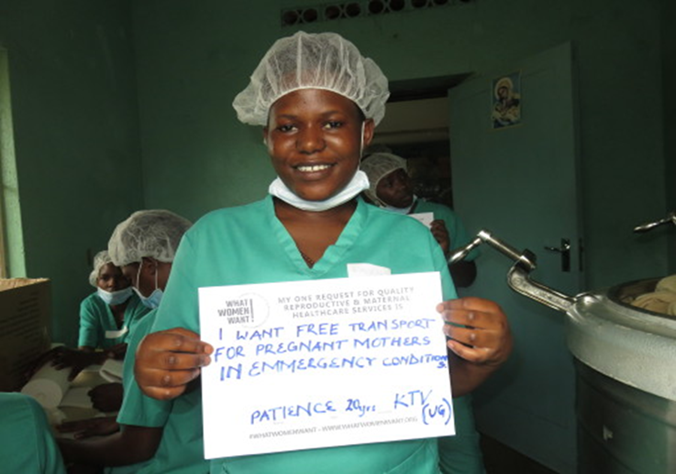 WHAT
WOMEN
WANT!
MY ONE REQUEST FOR QUALITY
REPRODUCTIVE & MATERNAL
HEALTHCARE SERVICES IS
I WANT FREE TRANSPORT
FOR PREGNANT MOTHERS
IN EMMERGENCY CONDITIONS.
PATIENCE 20yrs KTV
(UG)
#WHATWOMENWANT • WWW.WHATWOMENWANT.ORG